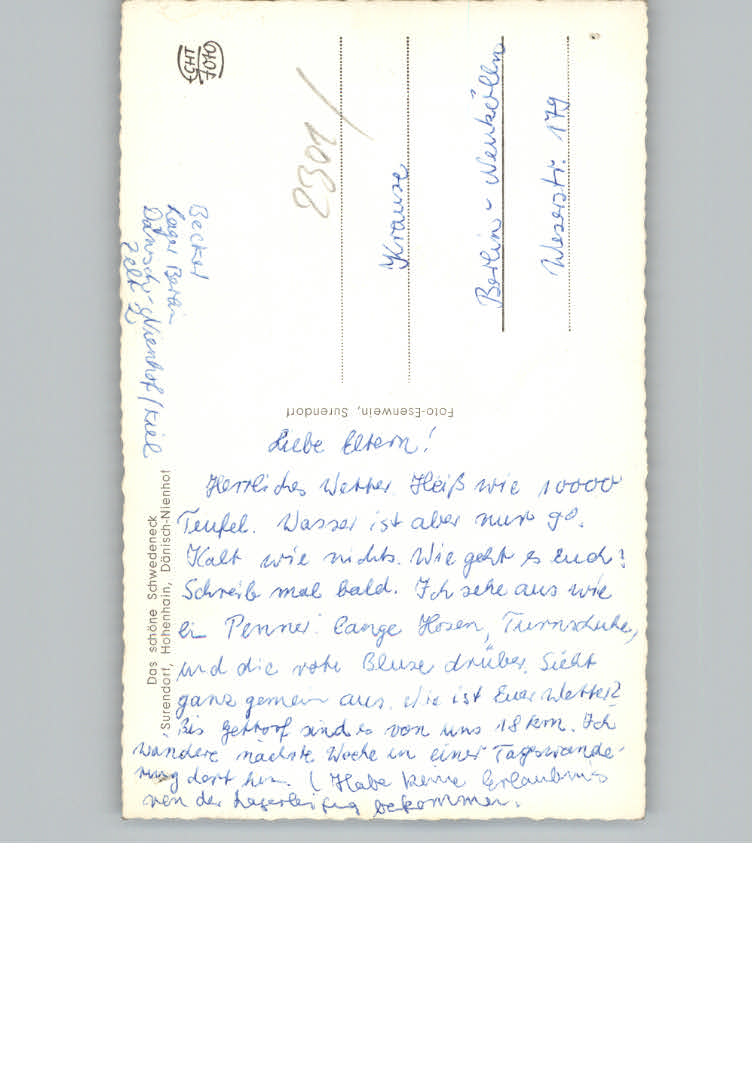 Liebe Eltern!
Herrliches Wetter. Heiß wie 10000
Teufel. Wasser ist aber nur 9°.
Kalt wie nichts. Wie geht es Euch?
Schreib mal bald. Ich sehe aus wie
ein Penner. Lange Hosen, Turnschuhe,
und die rote Bluse drüber. Sieht
ganz gemein aus. Wie ist Euer Wetter?
Bis Gettorf sind es von uns 18 km. Ich
wandere nächste Woche in einer Tageswande-
rung dort hin. (Habe keine Erlaubnis
von der Lagerleitung bekommen.
Das schöne Schwedeneck
Surendorf, Hohenhain, Dänisch-Nienhof
Foto-Esenwein, Surendorf
Lager Berlin
Dänisch-Nienhof/Kiel
Zelt 2
2301/
Krause
Berlin-Neukölln
Weserstr. 179
ECHT
FOTO